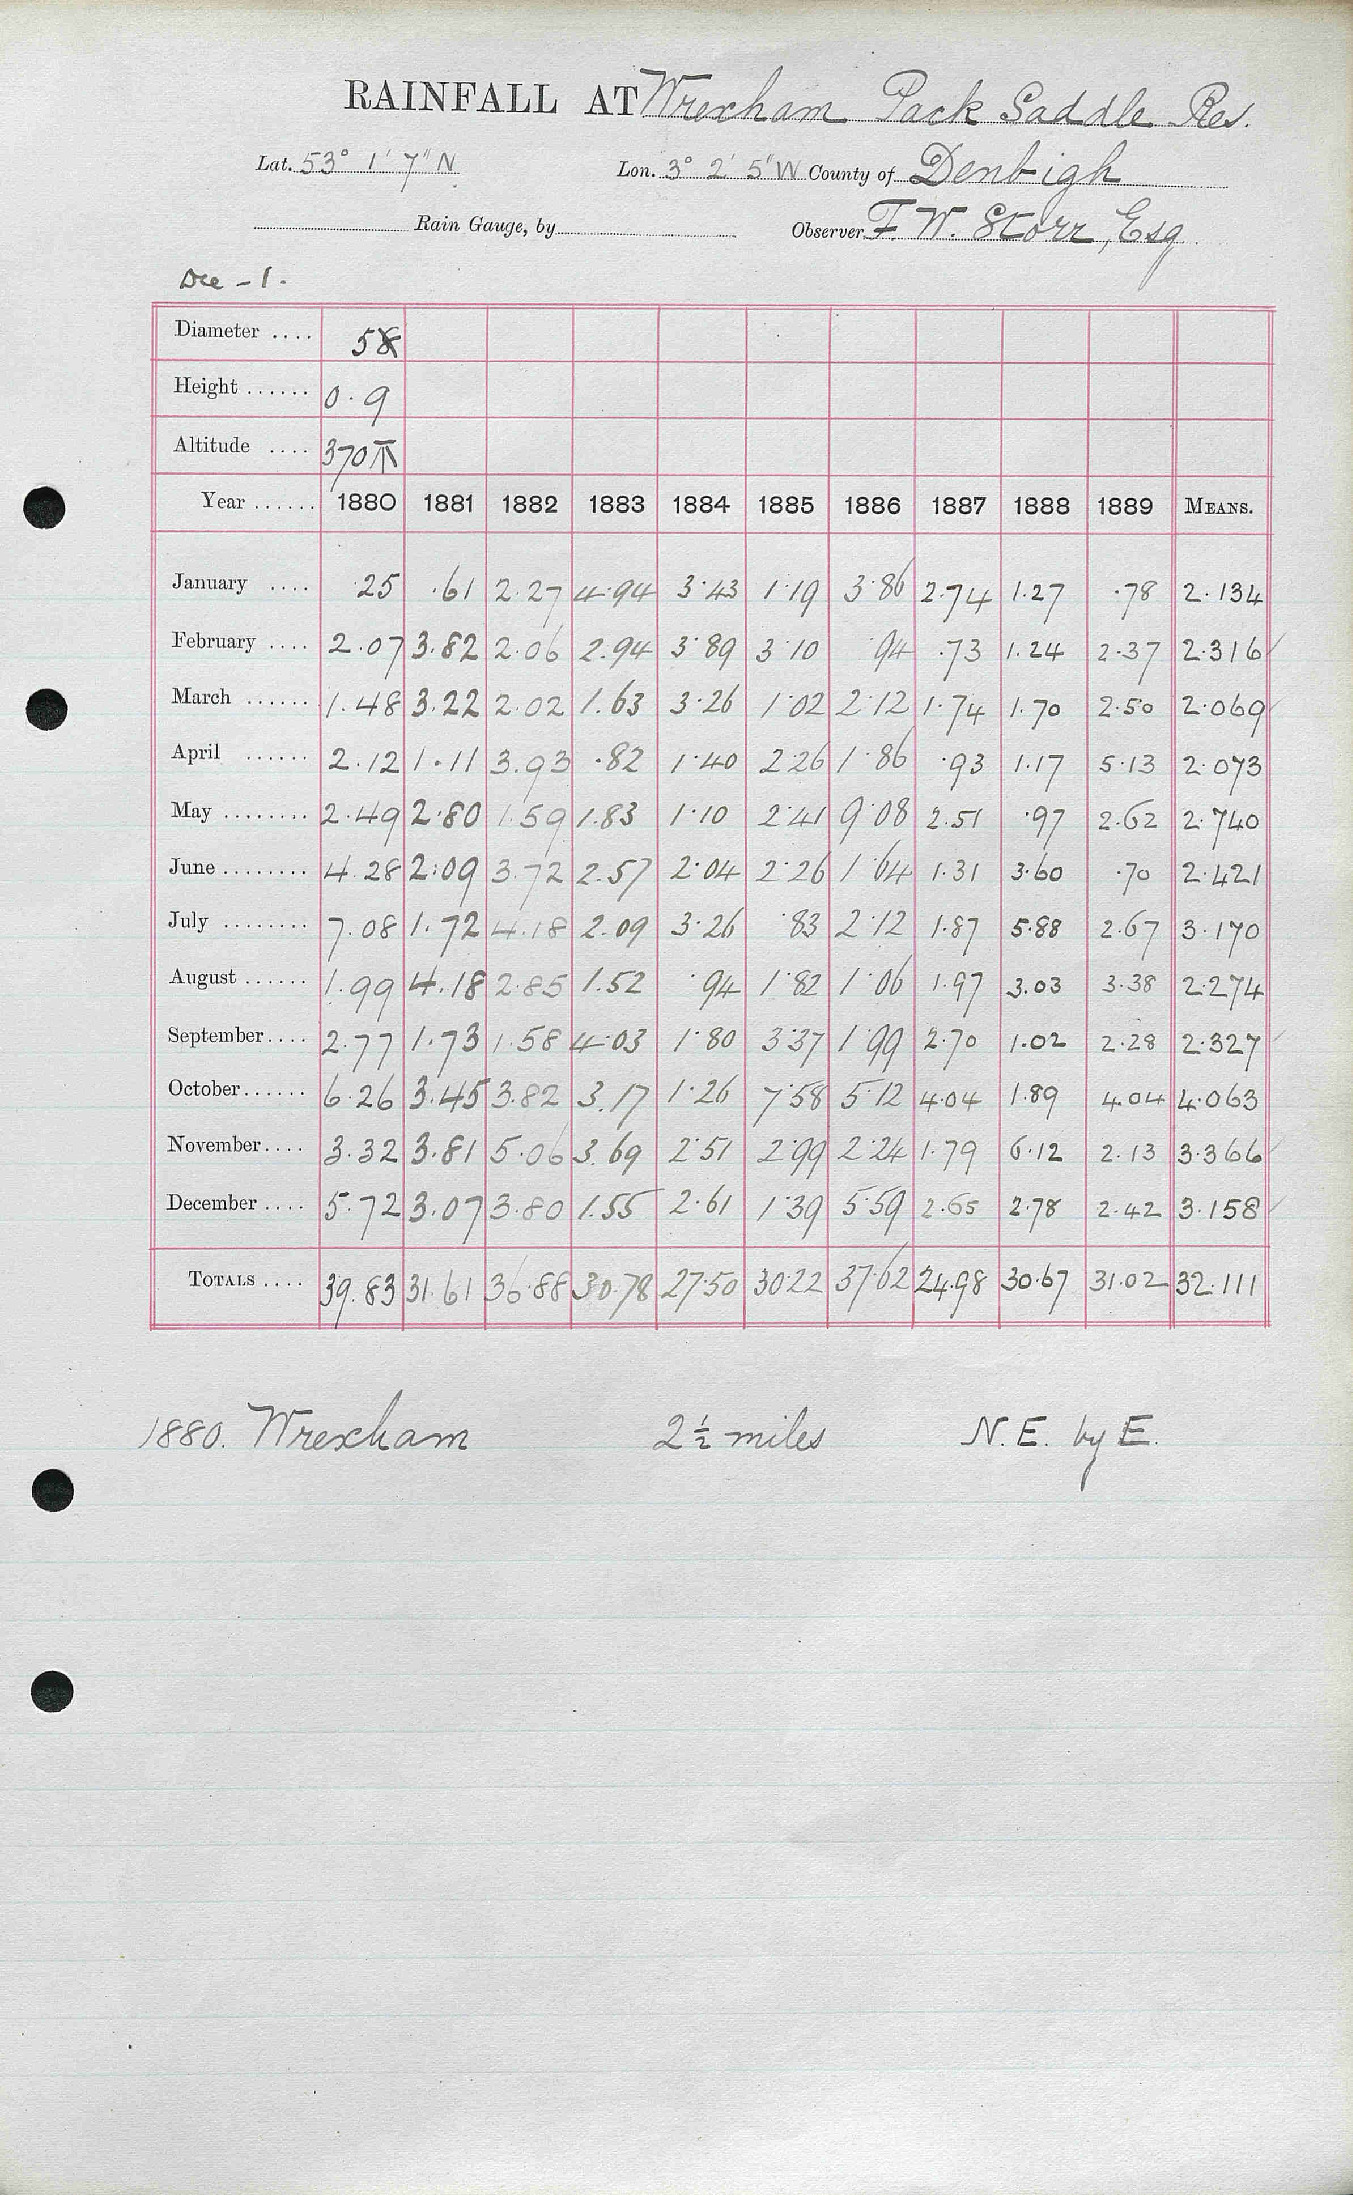 RAINFALL AT Wrexham Pack Saddle Res.
Lat. 53° 1' 7" N Lon. 3° 2' 5" W County of Denbigh
Rain Gauge, by Observer F. W. Storr, Esq
Dec - 1.
Diameter .... 5
Height ...... 0.9
Altitude .... 370
Year ...... 1880 1881 1882 1883 1884 1885 1886 1887 1888 1889 MEANS.
January .... .25 .61 2.27 4.94 3.43 1.19 3.86 2.74 1.27 .78 2.134
February .... 2.07 3.82 2.06 2.94 3.89 3.10 .94 .73 1.24 2.37 2.316
March ...... 1.48 3.22 2.02 1.63 3.26 1.02 2.12 1.74 1.70 2.50 2.069
April ...... 2.12 1.11 3.93 .82 1.40 2.26 1.86 .93 1.17 5.13 2.073
May ........ 2.49 2.80 1.59 1.83 1.10 2.41 9.08 2.51 .97 2.62 2.740
June ........ 4.28 2.09 3.72 2.57 2.04 2.26 1.64 1.31 3.60 .70 2.421
July ........ 7.08 1.72 4.18 2.09 3.26 .83 2.12 1.87 5.88 2.67 3.170
August ...... 1.99 4.18 2.85 1.52 .94 1.82 1.06 1.97 3.03 3.38 2.274
September .... 2.77 1.73 1.58 4.03 1.80 3.37 1.99 2.70 1.02 2.28 2.327
October ...... 6.26 3.45 3.82 3.17 1.26 7.58 5.12 4.04 1.89 4.04 4.063
November .... 3.32 3.81 5.06 3.69 2.51 2.99 2.24 1.79 6.12 2.13 3.366
December .... 5.72 3.07 3.80 1.55 2.61 1.39 5.59 2.65 2.78 2.42 3.158
TOTALS .... 39.83 31.61 36.88 30.78 27.50 30.22 37.62 24.98 30.67 31.02 32.111
1880. Wrexham 2½ miles N.E. by E.